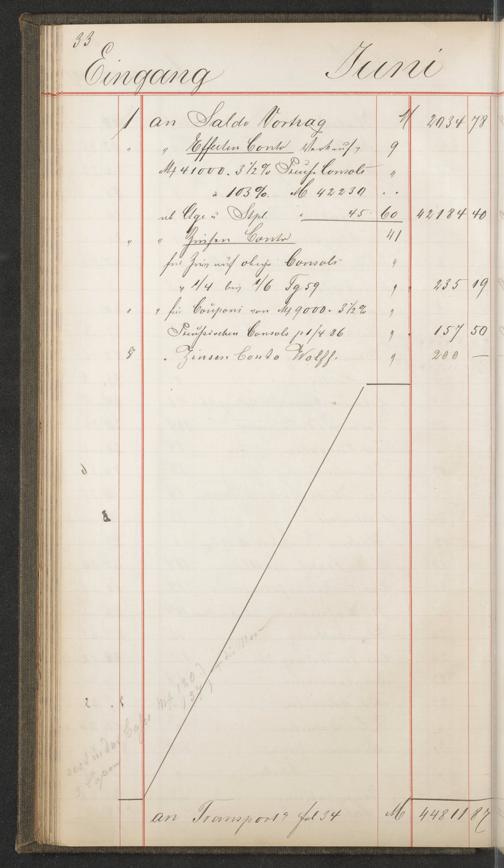 33
Eingang Juni
1 an Saldo Vortrag 1/ 2034 78
" " Effecten Conto Verkauf 9
M 41000. 3 1/2 % Preuss. Consols "
à 103 % M 42230 . .
ab Ctge u Stpl. " 45 60 42184 40
" " Zinsen Conto 41
für Zins auf obige Consols "
v 1/4 bis 1/6 Tg 59 " 235 19
" " für Coupons von M 9000. 3 1/2 % "
Preussischen Consols p 1/4 86 " 157 50
8 " Zinsen Conto Wolff. 9 200 —
an Transport fol 34 M 44811 87